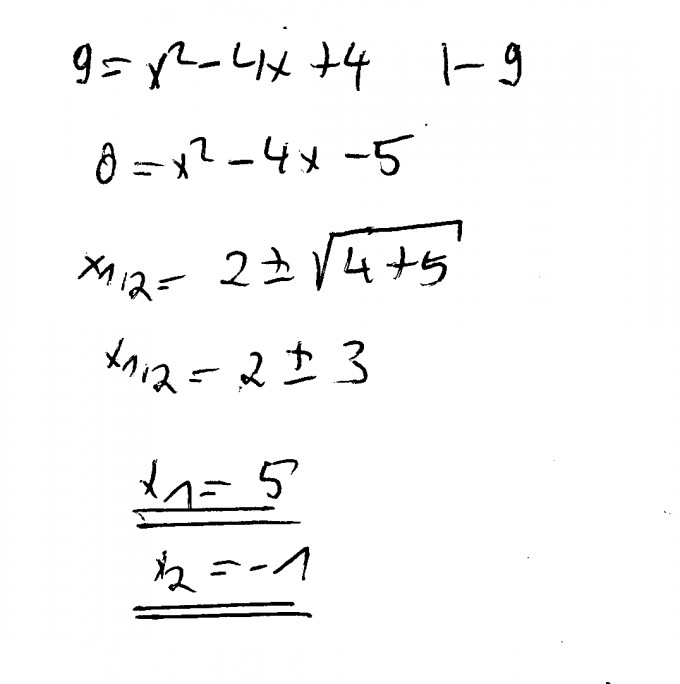 9 = x² - 4x + 4 | - 9
0 = x² - 4x - 5
x1,2 = 2 ± √(4 + 5)
x1,2 = 2 ± 3
x1 = 5
x2 = -1